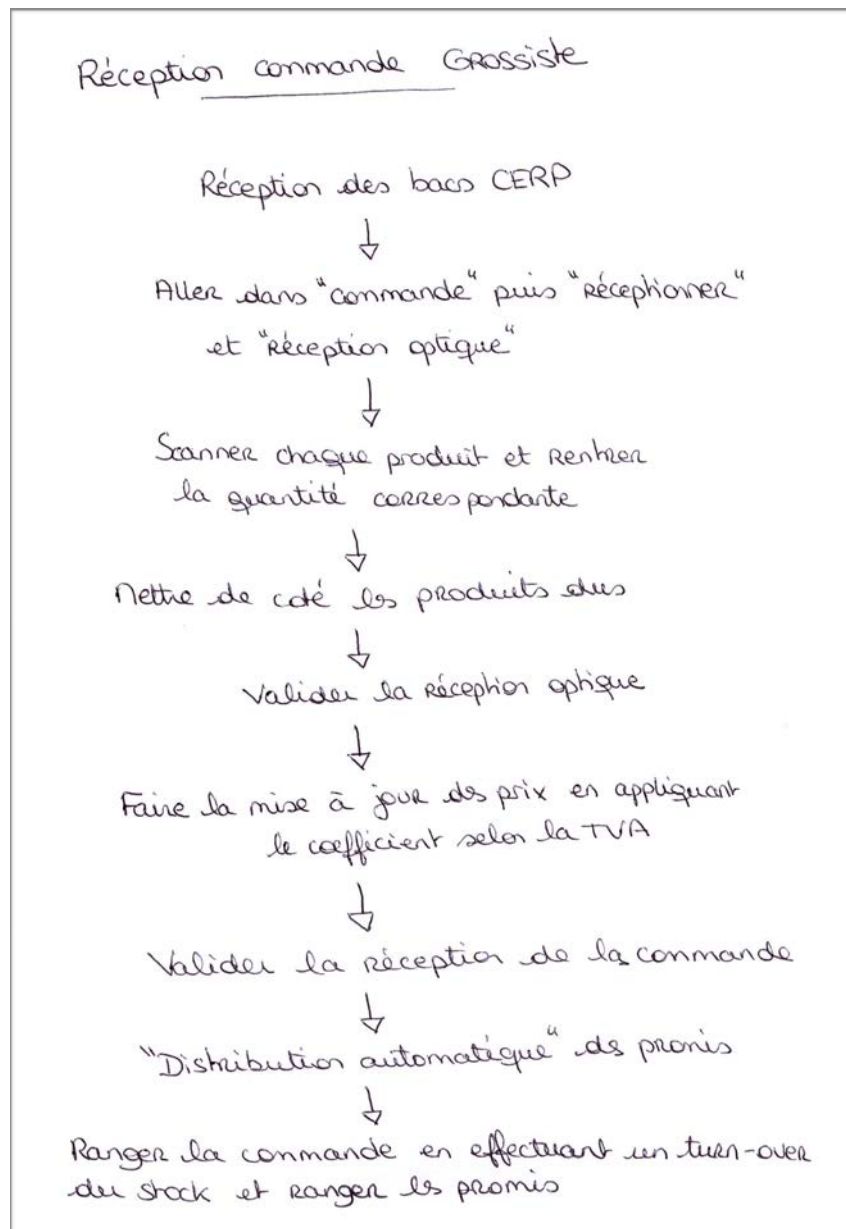 Réception commande GROSSiste
Réception des bacs CERP
Aller dans "commande" puis "Réceptionner"
et "Réception optique"
Scanner chaque produit et Rentrer
la quantité correspondante
Mettre de coté les produits dus
Valider la Réception optique
Faire la mise à jour des prix en appliquant
le coefficient selon la TVA
Valider la réception de la commande
"Distribution automatique" des promis
Ranger la commande en effectuant un turn-over
du stock et ranger les promis